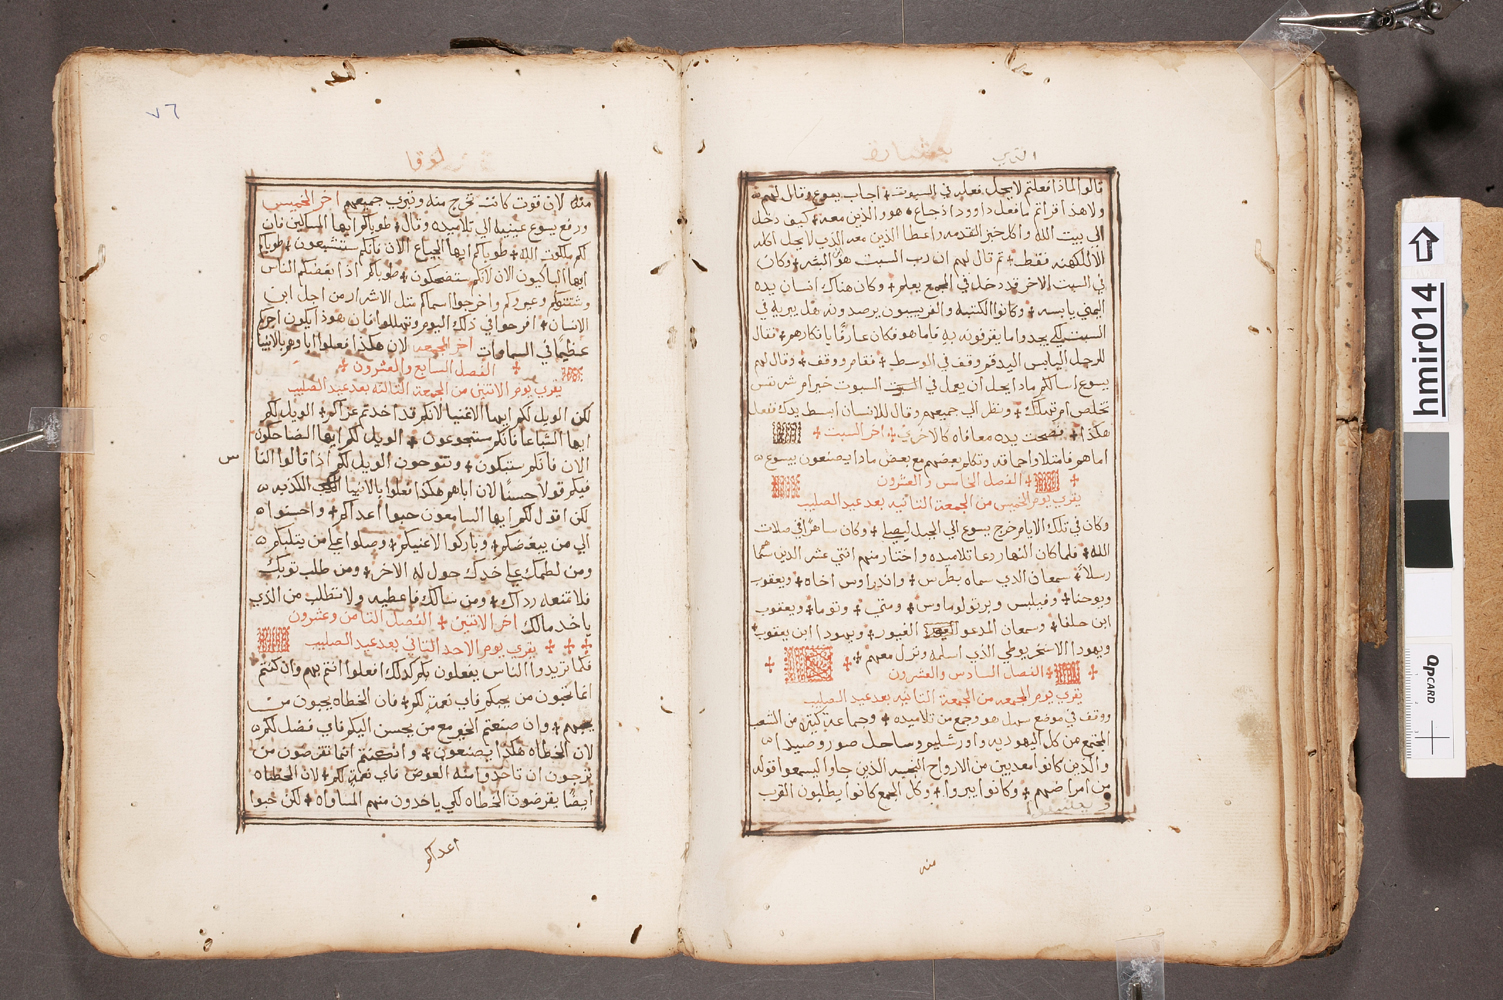 القدس بشارة
قالوا لماذا فعلتم لا يحل فعله في السبوت ✢ اجاب يسوع وقال لهم
ولا هذا قراتم ما فعل داوود اذ جاع • هو والذين معه ✢ كيف دخل
الى بيت الله واكل خبز التقدمه واعطا الذين معه الذي لا يحل اكله
الا للكهنه فقط ✢ ثم قال لهم ان رب السبت هو ابن البشر ✢ وكان
في السبت الاخر قد دخل في المجمع يعلم ✢ وكان هناك انسان يده
اليمني يابسه ✢ وكانوا الكتبه والفريسيون يرصدونه هل يبريه في
السبت لكي يجدوا ما يقرفونه به فاما هو فكان عارفا بافكارهم ✢ فقال
للرجل اليابس اليد قم وقف في الوسط ✢ فقام ووقف ✢ وقال لهم
يسوع اسالكم ماذا يحل ان يعمل في السبوت خير ام شر نفس
تخلص ام تهلك ✢ ونظر الي جميعهم وقال للانسان ابسط يدك ففعل
هكذا ✢ فصحت يده معافاه كالاخري ✢ اخر السبت ✢
اما هم فامتلاوا حماقه وتكلم بعضهم مع بعض ماذا يصنعون بيسوع
✢ الفصل الخامس والعشرون
يقري يوم الخميس من الجمعة الثانيه بعد عيد الصليب
وكان في تلك الايام خرج يسوع الي الجبل ليصلي ✢ وكان ساهرا في صلات
الله ✢ فلما كان النهار دعا تلاميده واختار منهم اثني عشر الدين سما
رسلا ✢ سمعان الدي سماه بطرس ✢ واندراوس اخاه ✢ ويعقوب
ويوحنا ✢ وفيلبس وبرتولوماوس ✢ ومتي ✢ وتوما ✢ ويعقوب
ابن حلفا ✢ وسمعان المدعو الغيور ✢ ويهودا ابن يعقوب
ويهودا الاسخريوطي الذي اسلمه ونزل معهم ✢
✢ الفصل السادس والعشرون
يقري يوم الجمعه من الجمعة الثانيه بعد عيد الصليب
ووقف في موضع سهل هو وجمع من تلاميده ✢ وجماعة كثيرة من الشعب
المجتمع من كل اليهوديه واورشليم وساحل صور وصيدا
والدين كانوا معدبين من الارواح النجسه الذين جاوا ليسمعوا قوله
من امراضهم ✢ وكانوا يبروا ✢ وكل الجمع كانوا يطلبون القرب
منه
٧٦
لوقا
منه لان قوت كانت تخرج منه وتبري جميعهم اخر الخميس
ورفع يسوع عينيه الي تلاميده وقال ✢ طوباكم ايها المساكين فان
لكم ملكوت الله ✢ طوباكم ايها الجياع الان فانكم ستشبعون ✢ طوباكم
ايها الباكيون الان لانكم ستضحكون ✢ طوباكم اذا ابغضكم الناس
وشتتوكم وعيروكم واخرجوا اسماكم مثل الاشرار من اجل ابن
الانسان ✢ افرحوا في ذلك اليوم وتهللوا فان هوذا يكون اجركم
عظيما في السماوات اخر الجمعه لان هكذا فعلوا اباوهم بالانبيا
✢ الفصل السابع والعشرون ✢
يقري يوم الاثنين من الجمعة الثالثه بعد عيد الصليب
لكن الويل لكم ايها الاغنيا لانكم قد اخدتم عزاكم ✢ الويل لكم
ايها الشباعا فانكم ستجوعون ✢ الويل لكم ايها الضاحكون
الان فانكم ستبكون ✢ وتنوحون الويل لكم اذا قالوا النا
س
فيكم قولا حسنا لان اباهم هكذا فعلوا بالانبيا الكذبه
لكن اقول لكم ايها السامعون حبوا أعداكم ✢ واحسنوا
الي من يبغضكم ✢ وباركوا لاعنيكم ✢ وصلوا علي من يثلبكم
ومن لطمك علي خدك حول له الاخر ✢ ومن طلب توبك
فلا تمنعه رداك ✢ ومن سالك فاعطيه ولا تطلب من الذي
ياخد مالك اخر الاثنين ✢ الفصل الثامن وعشرون
✢ ✢ ✢ يقري يوم الاحد الثاني بعد عيد الصليب
فكما تريدوا الناس يفعلون بكم كدلك افعلوا انتم بهم وان كنتم
انما تحبون من يحبكم فاي نعمة لكم ✢ فان الخطاه يحبون من
يحبهم ✢ وان صنعتم الخير مع من يحسن اليكم فاي فضل لكم
لان الخطاه هكذا يصنعون ✢ وان كنتم انما تقرضون من
ترجون ان تاخدوا منه العوض فاي نعمة لكم ✢ لان الخطاه
ايضا يقرضون الخطاه لكي ياخدون منهم المساواه ✢ لكن حبوا
اعداكم
hmir014
QPCARD